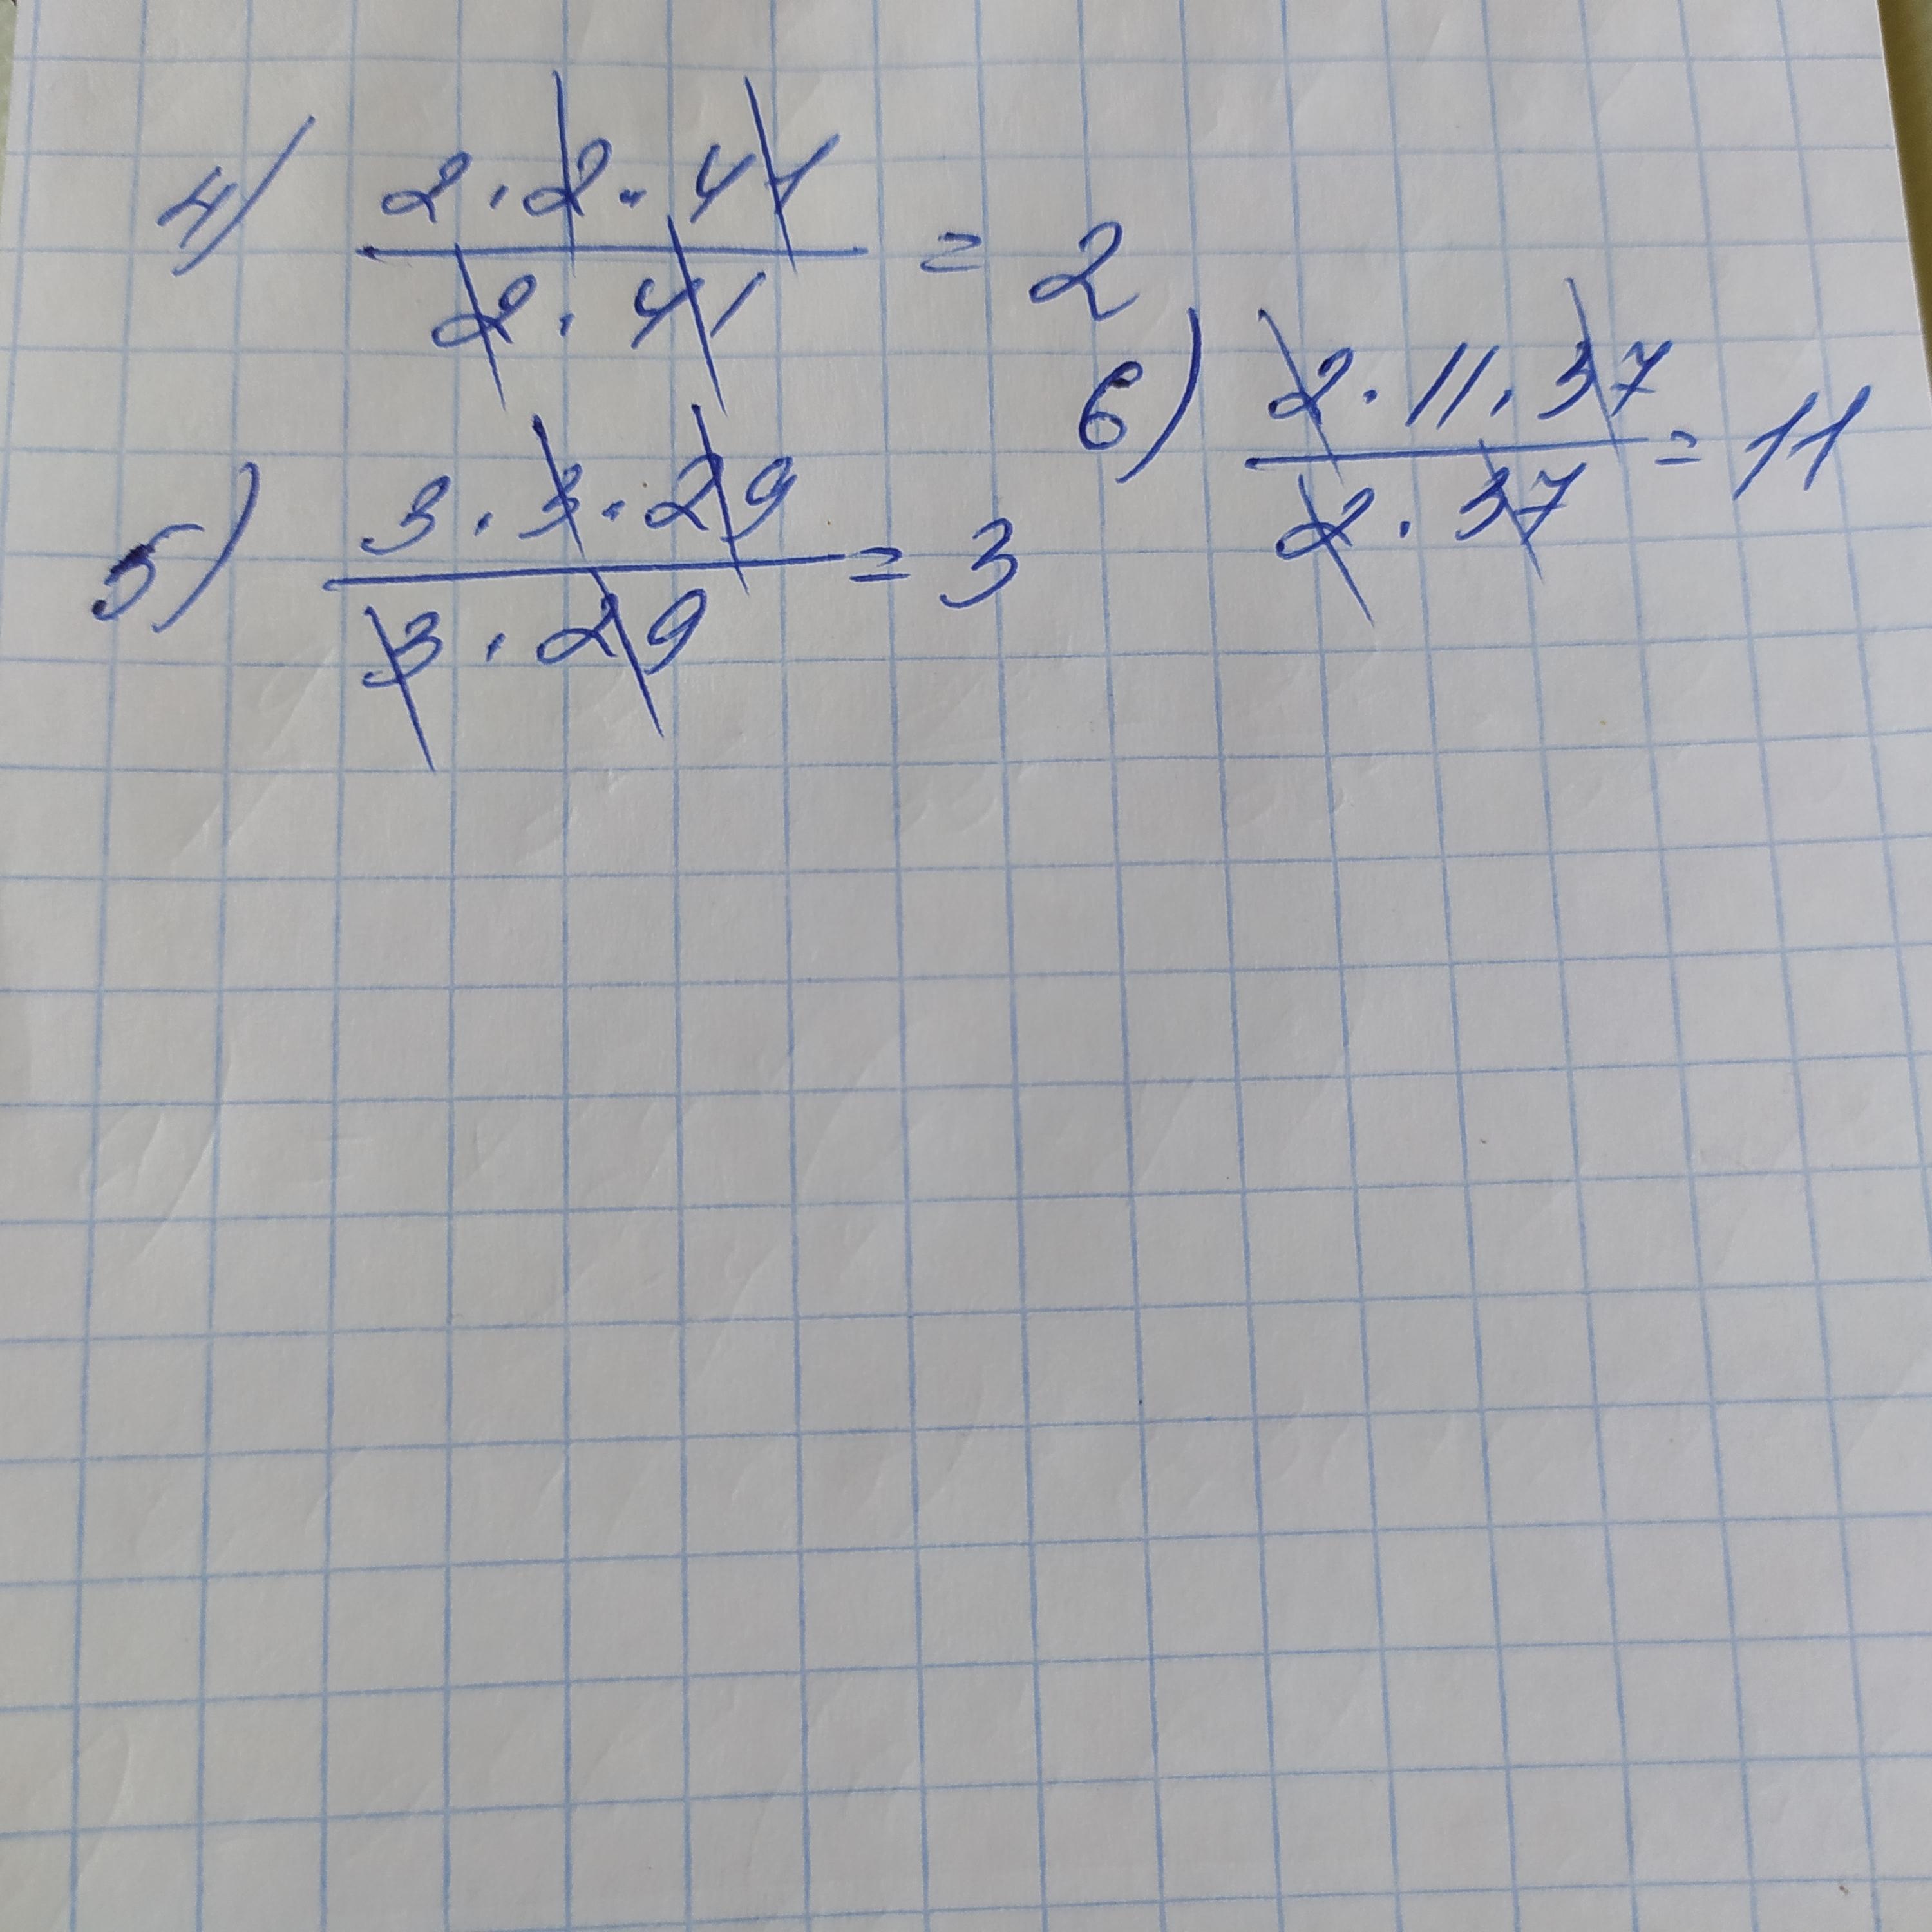 4) 2 · 2 · 41
2 · 41
= 2
5) 3 · 3 · 29
3 · 29
= 3
6) 2 · 11 · 37
2 · 37
= 11